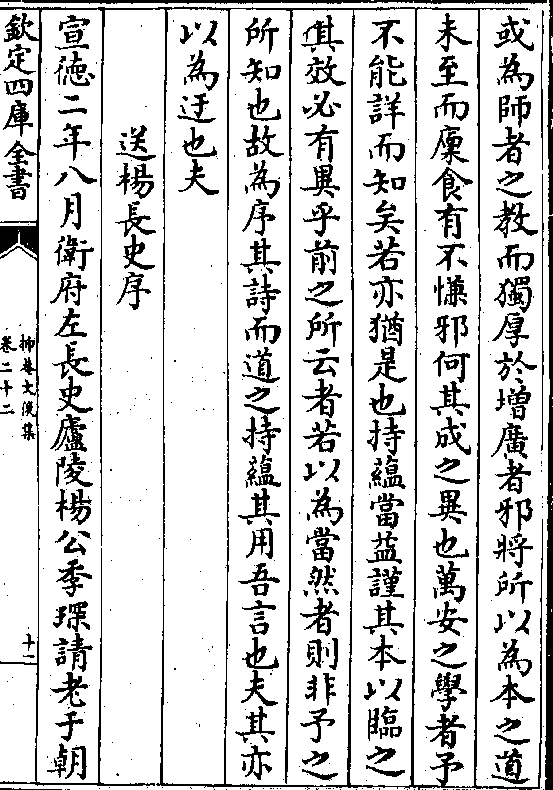 或為師者之教而獨厚於增廣者邪將所以為本之道
未至而廩食有不慊邪何其成之異也萬安之學者予
不能詳而知矣若亦猶是也持藴當益謹其本以臨之
其效必有異乎前之所云者若以為當然者則非予之
所知也故為序其詩而道之持藴其用吾言也夫其亦
以為迂也夫
送楊長史序
宣徳二年八月衛府左長史廬陵楊公季琛請老于朝
欽定四庫全書
抑菴文後集
卷二十二
十二